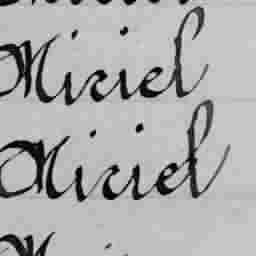 Miriel
Miriel